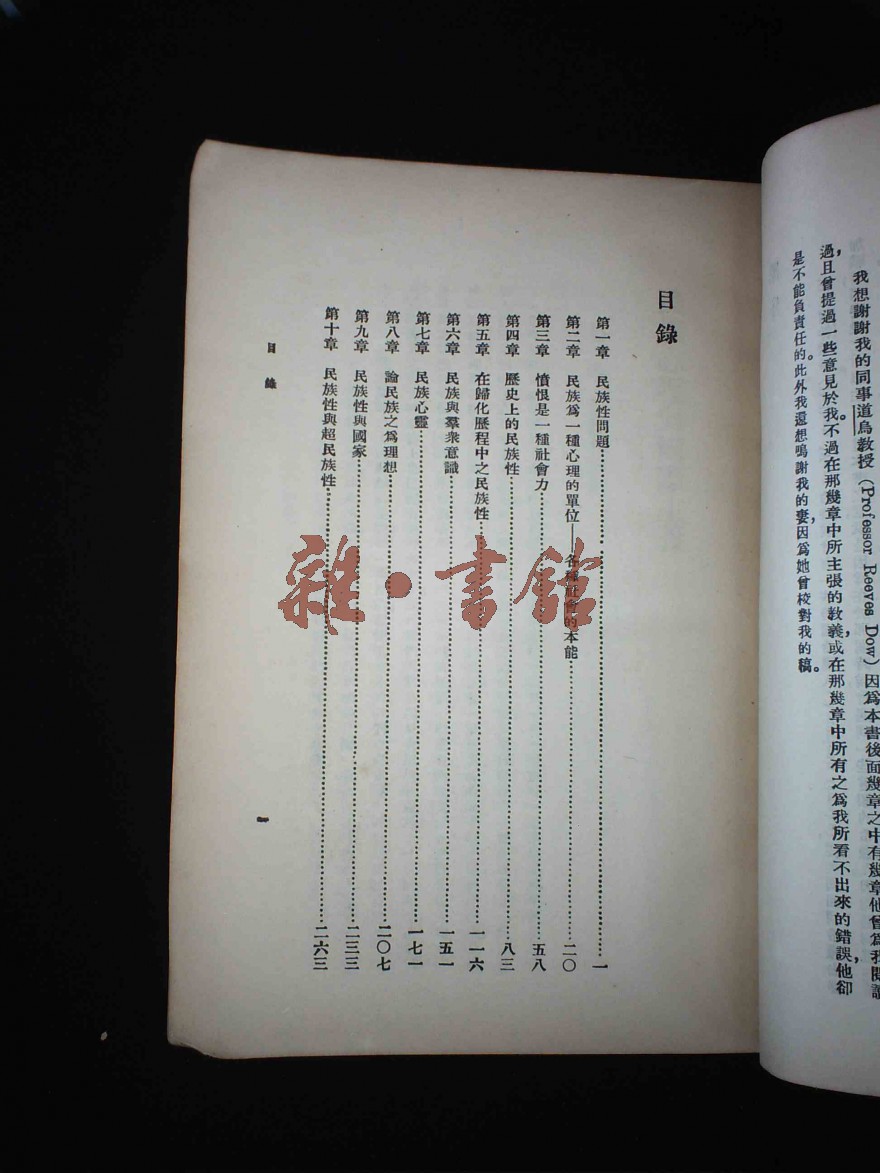 我想謝謝我的同事道烏教授（Professor Reeves Dow）因爲本書後面幾章之中有幾章他曾爲我閱讀
過，且曾提過一些意見於我。不過在那幾章中所主張的敎義，或在那幾章中所有之爲我所看不出來的錯誤，他卻
是不能負責任的。此外我還想鳴謝我的妻，因爲她曾校對我的稿。
目錄
第一章 民族性問題……一
第二章 民族爲一種心理的單位——各種社會的本能……二〇
第三章 憤恨是一種社會力……五八
第四章 歷史上的民族性……八三
第五章 在歸化歷程中之民族性……一一六
第六章 民族與羣衆意識……一五一
第七章 民族心靈……一七一
第八章 論民族之爲理想……二〇七
第九章 民族性與國家……二三三
第十章 民族性與超民族性……二六三
目錄
一
雜·書館